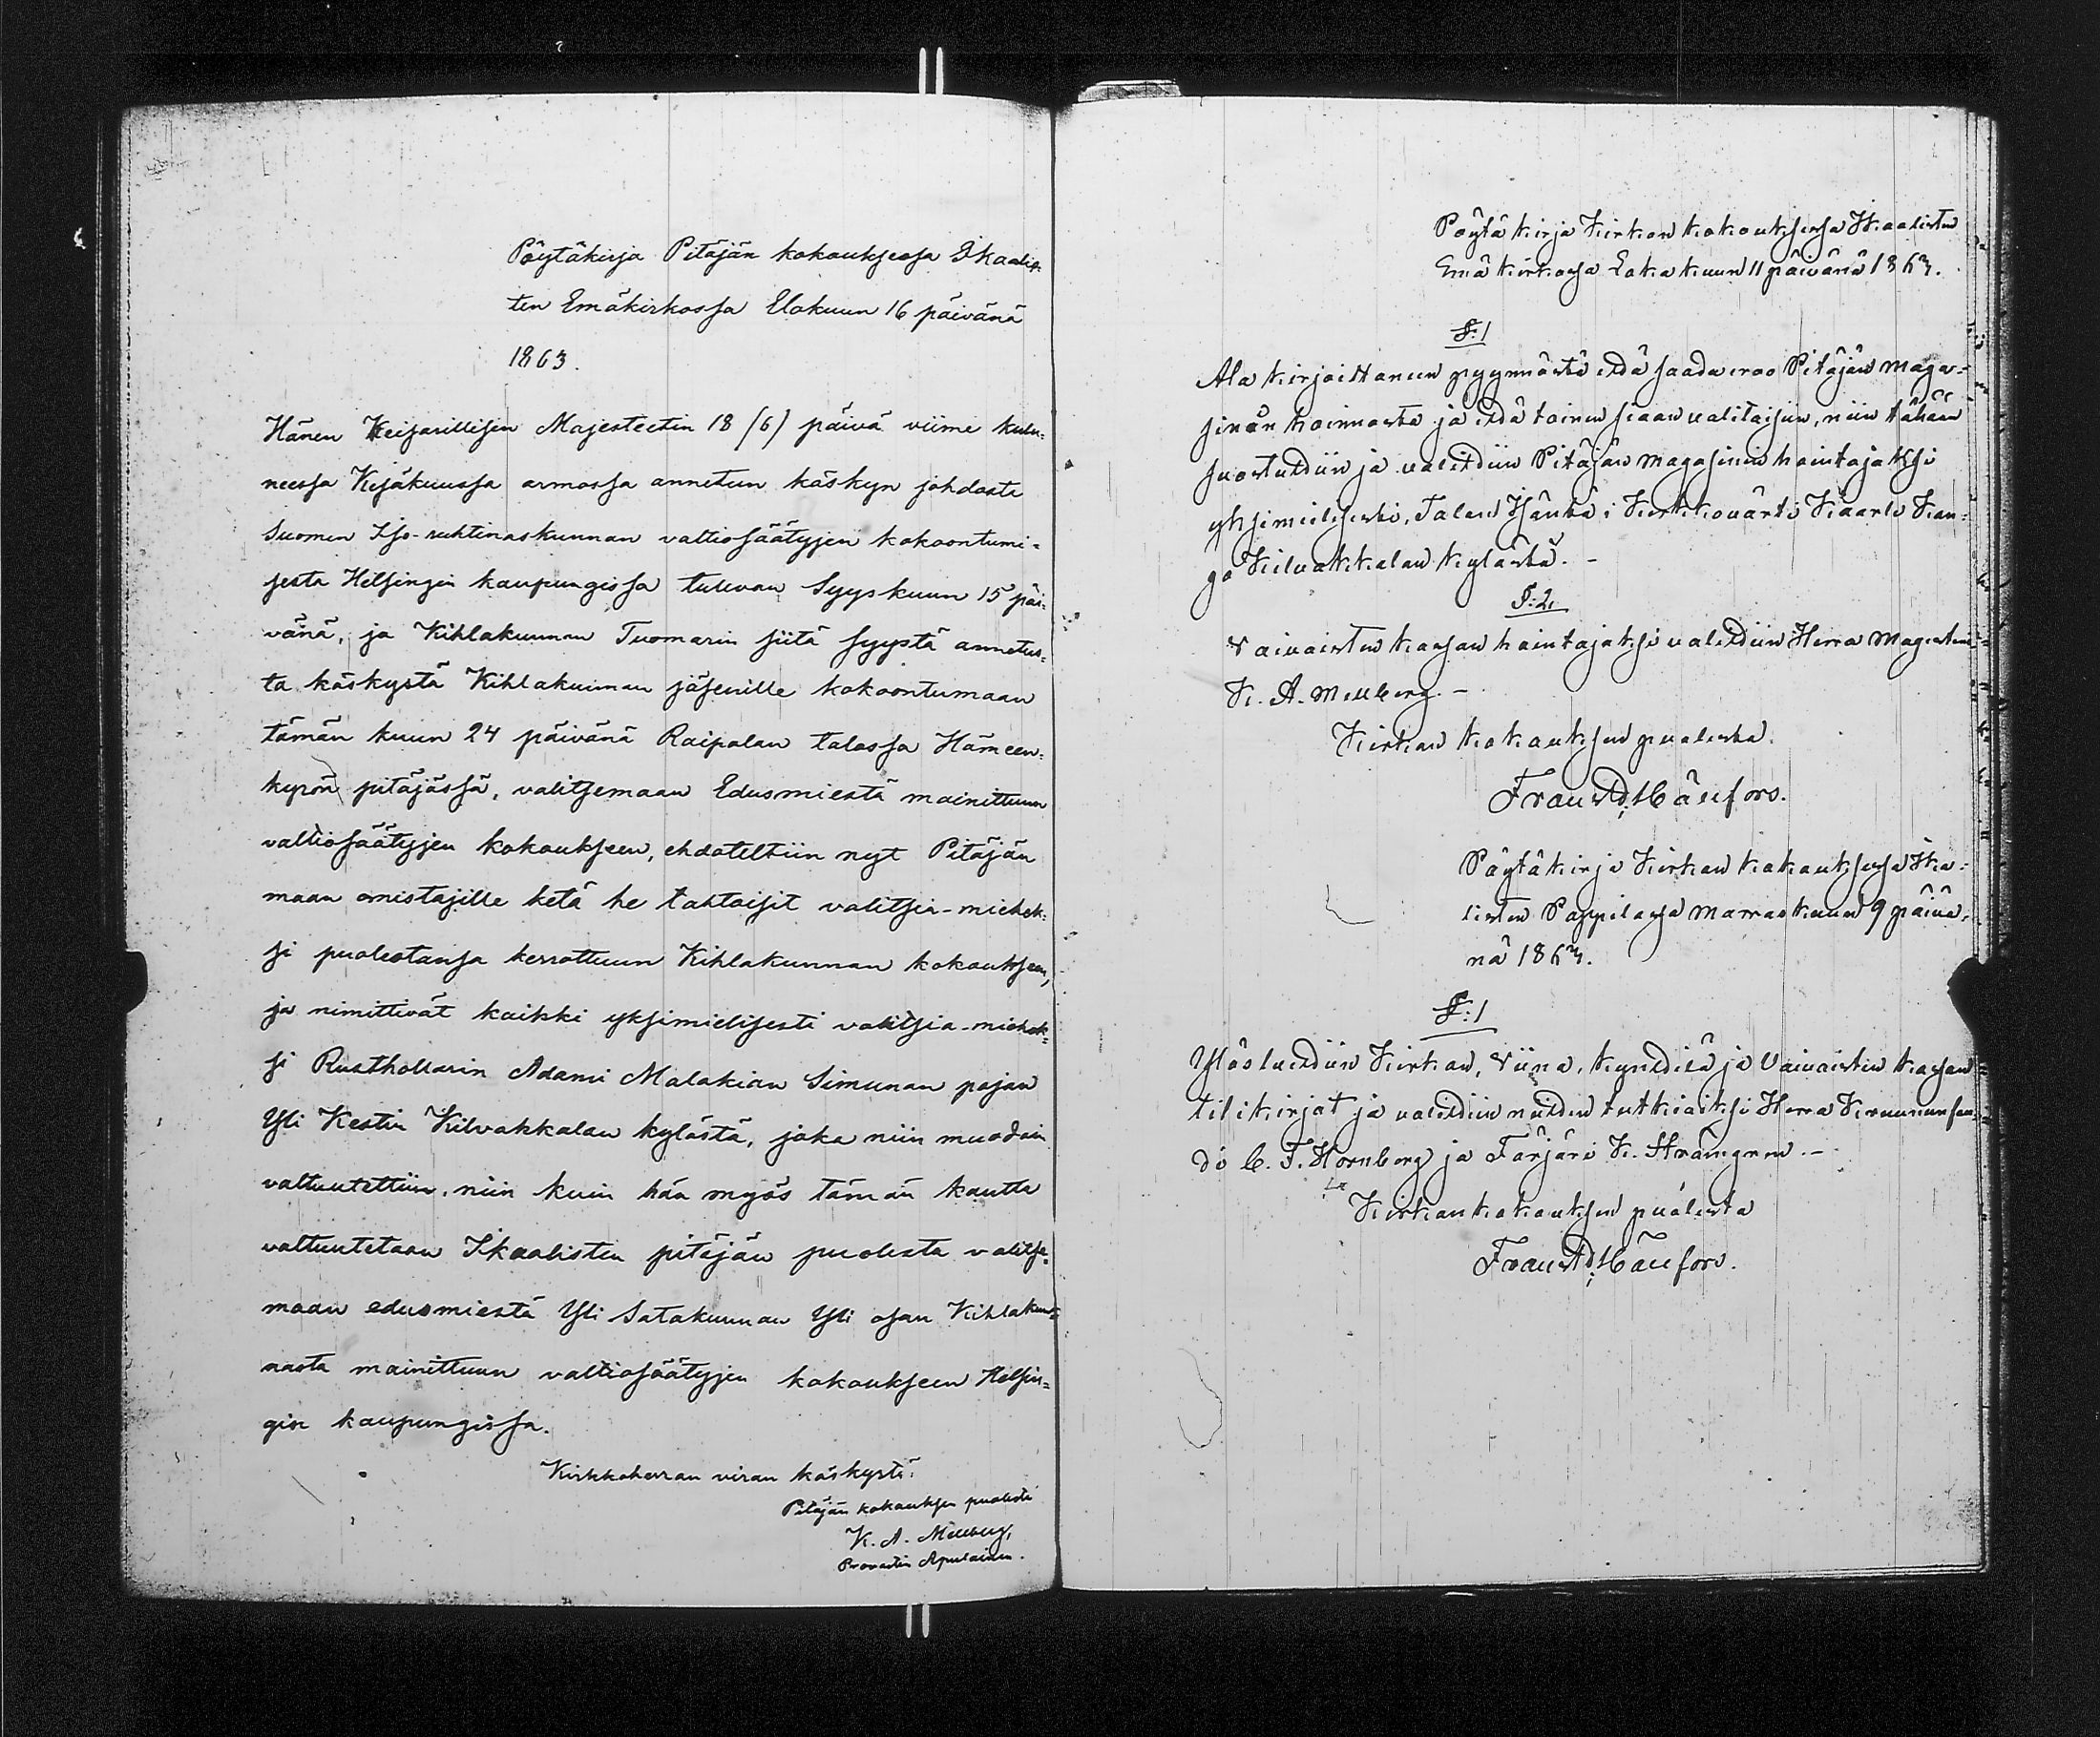 Pöytäkirja Pitäjän kokouksessa Ikaalis-
ten Emäkirkossa Elokuun 16 päivänä
1863.
Hänen Keisarillisen Majesteetin 18 (6) päivä viime kulu-
neessa Kesäkuussa armossa annetun käskyn johdosta
Suomen Iso-ruhtinaskunnan valtiosäätyjen kokoontumi-
sesta Helsingin kaupungissa tulevan Syyskuun 15 päi-
vänä, ja Kihlakunnan Tuomarin siitä syystä annetus-
ta käskystä Kihlakunnan jäsenille kokoontumaan
tämän kuun 24 päivänä Raipalan talossa Hämeen-
kyrön pitäjässä, valitsemaan Edusmiestä mainittuun
valtiosäätyjen kokoukseen, ehdoteltiin nyt Pitäjän
maan omistajille ketä he tahtoisit valitsia-miehek-
si puolestansa kerrottuun Kihlakunnan kokoukseen,
ja nimittivät kaikki yksimielisesti valitsia-miehek-
si Rusthollarin Adami Malakian Simunan pojan
Yli Kestin Kilvakkalan kylästä, joka niin muodoin
valtuutettiin, niin kuin hän myös tämän kautta
valtuutetaan Ikaalisten pitäjän puolesta valitse-
maan edusmiestä Yli Satakunnan Yli osan Kihlakun-
nasta mainittuun valtiosäätyjen kokoukseen Helsin-
gin kaupungissa.
Kirkkoherran viran käskystä:
Pitäjän kokouksen puolesta
K. A. Mellberg,
Provastin Apulainen.
Pöytäkirja Kirkon kokouksessa Ikaalisten
Emäkirkossa Lokakuun 11 päivänä 1863.
§:1
Alakirjoittaneen pyynnöstä että saada eroo Pitäjän maga-
sinin hoinnosta ja että toinen siaan valitaisiin, niin tähän
suostuttiin ja valittiin Pitäjän magasinin hointajaksi
yksimielisesti, Talon Isäntä i Kirkkovärti Kaarlo Kan-
go Kilvakkalan kylästä. -
§:2.
Vaivaisten kassan hointajaksi valittiin Herra Magisteri
K. A. Mellberg. -
Kirkon kokouksen puolesta.
Frans Häufors.
Pöytäkirja Kirkon kokouksessa Ika-
listen Pappilassa Marraskuun 9 päivä-
nä 1863.
§:1
Ylösluettiin Kirkon, Viina, kynttilä ja Vaivaisten kassan
tilikirjat ja valittiin niiden tutkiaiksi Herra Kruununfou-
di C. F. Hornborg ja Färjäri K. Strömgren. -
Kirkon kokouksen puolesta
Frans Häufors.